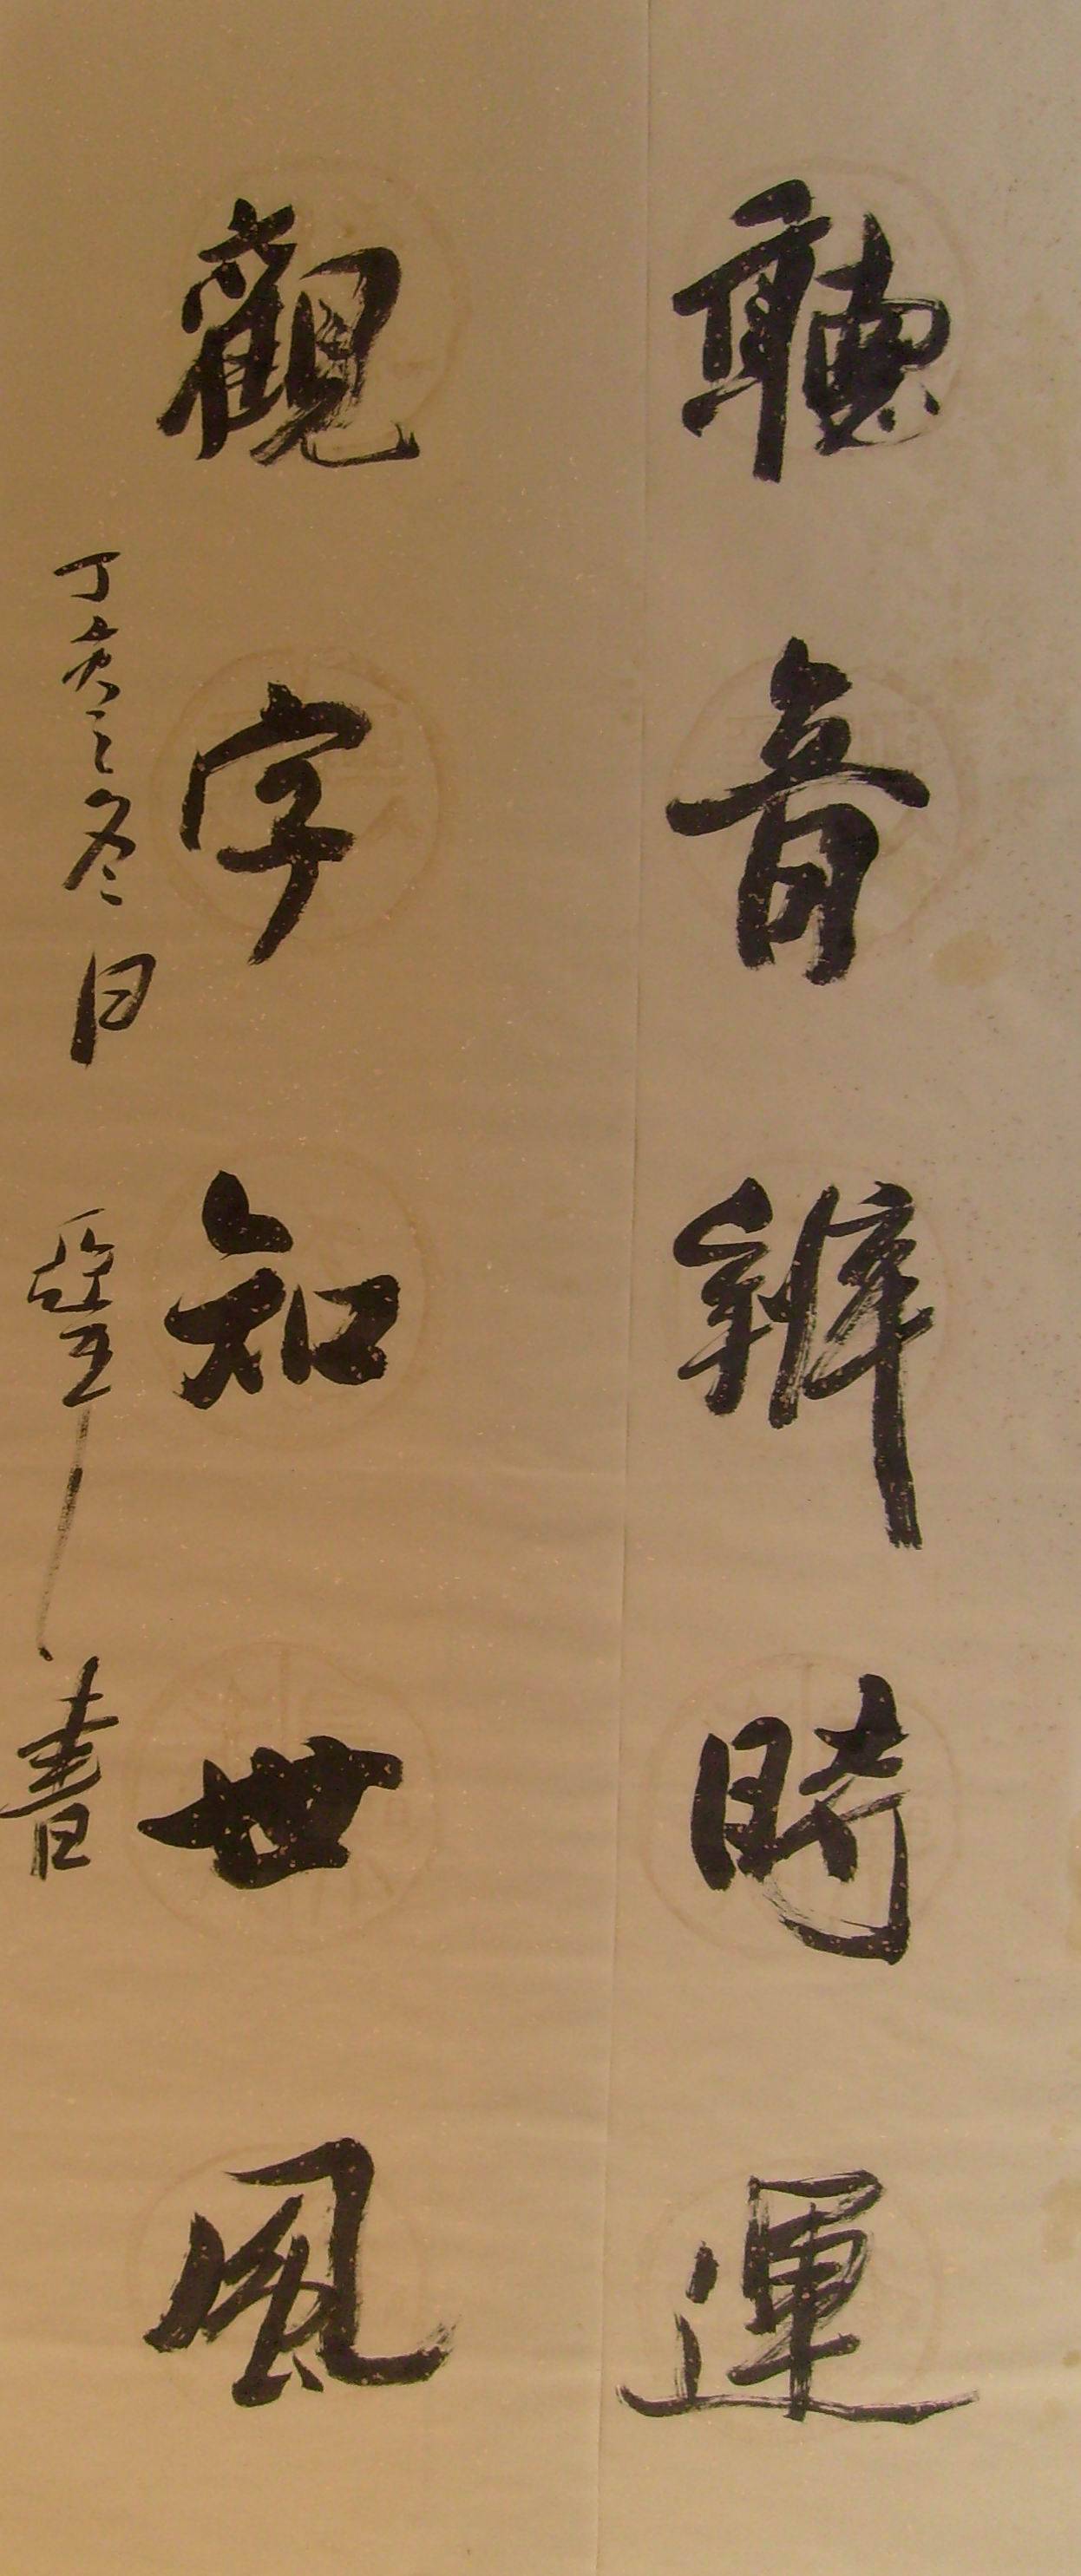 聽音辨時運
觀字知世風
丁亥之冬日 書